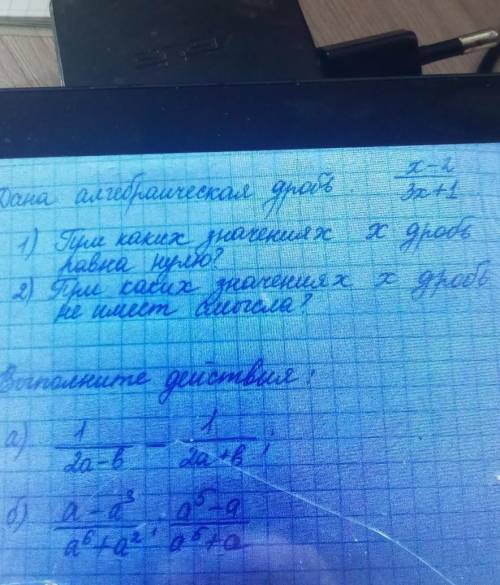 Дана алгебраическая дробь. x-2/3x+1
1) При каких значениях x дробь
равна нулю?
2) При каких значениях x дробь
не имеет смысла?
Выполните действия:
а) 1/2a-b - 1/2a+b;
б) a-a³/a⁶+a² : a⁵-a/a⁵+a